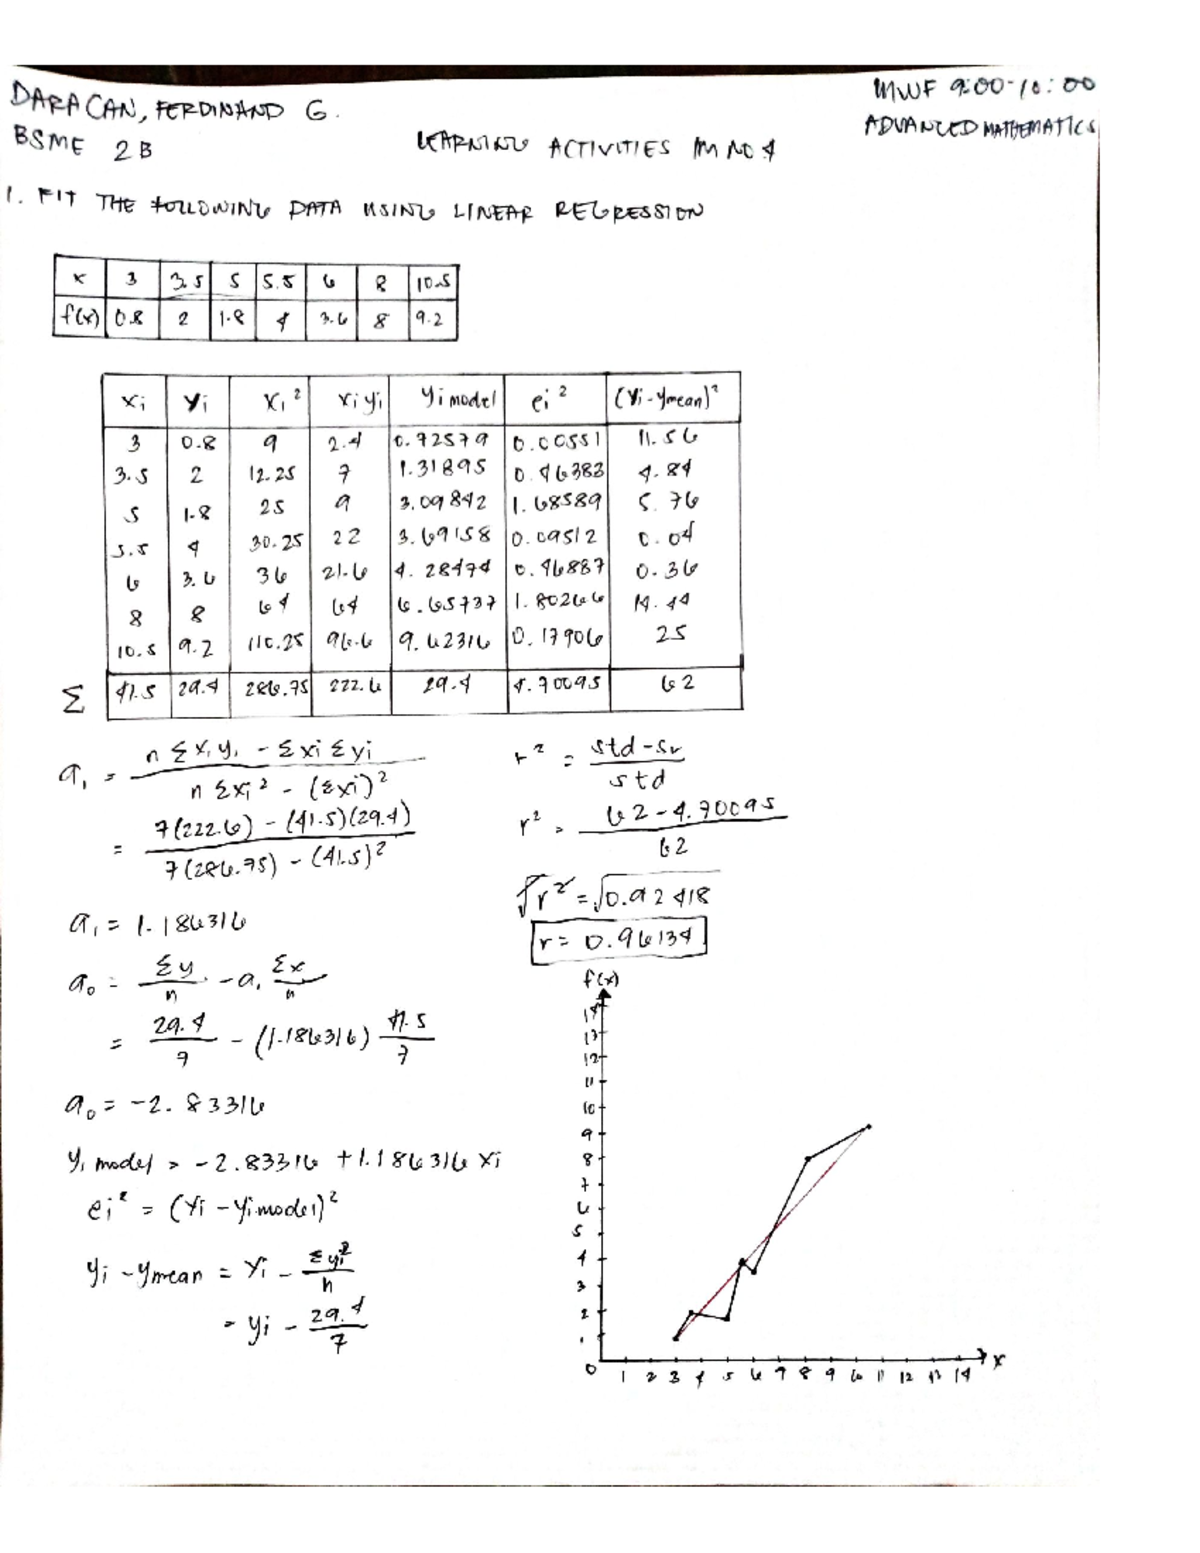 DARACAN, FERDINAND G.
MWF 9:00-10:00
BSME 2B
LEARNING ACTIVITIES IM NO 4
ADVANCED MATHEMATICS
1. FIT THE FOLLOWING DATA USING LINEAR REGRESSION
x 3 3.5 5 5.5 6 8 10.5
f(x) 0.8 2 1.8 4 3.6 8 9.2
xi yi xi² xiyi yi model ei² (yi-ymean)²
3 0.8 9 2.4 0.72579 0.00551 11.56
3.5 2 12.25 7 1.31895 0.46383 4.84
5 1.8 25 9 3.09842 1.68589 5.76
5.5 4 30.25 22 3.69158 0.09512 0.04
6 3.6 36 21.6 4.28474 0.46887 0.36
8 8 64 64 6.65737 1.80266 14.44
10.5 9.2 110.25 96.6 9.62316 0.17906 25
Σ 41.5 29.4 286.75 222.6 29.4 4.70095 62
a₁ = n Σxiyi - Σxi Σyi / n Σxi² - (Σxi)²
= 7(222.6) - (41.5)(29.4) / 7(286.75) - (41.5)²
a₁ = 1.186316
a₀ = Σy/n - a₁ Σx/n
= 29.4/7 - (1.186316) 41.5/7
a₀ = -2.83316
yi model = -2.83316 + 1.186316 xi
ei² = (yi - yi model)²
yi - ymean = yi - Σyi²/n
= yi - 29.4/7
r² = std - sr / std
r² = 62 - 4.70095 / 62
√r² = √0.92418
r = 0.96134
f(x)
14
13
12
11
10
9
8
7
6
5
4
3
2
1
0 1 2 3 4 5 6 7 8 9 10 11 12 13 14 x